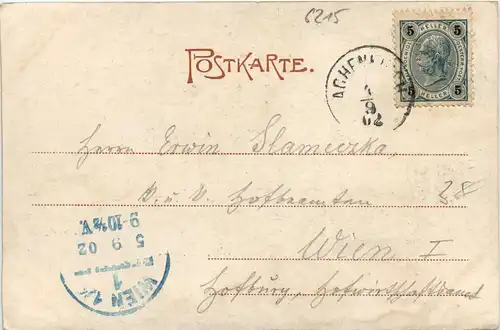 6215
POSTKARTE.
5 HELLER 5
5 HELLER 5
ACHENKIRCH
4
9
02
Herrn Erwin Slameczka
K. u. K. Hofbeamten
38
Wien I
Hofburg, Hofwirtschaftsamt
WIEN 1/1
1
5 9 02
9-10½V.